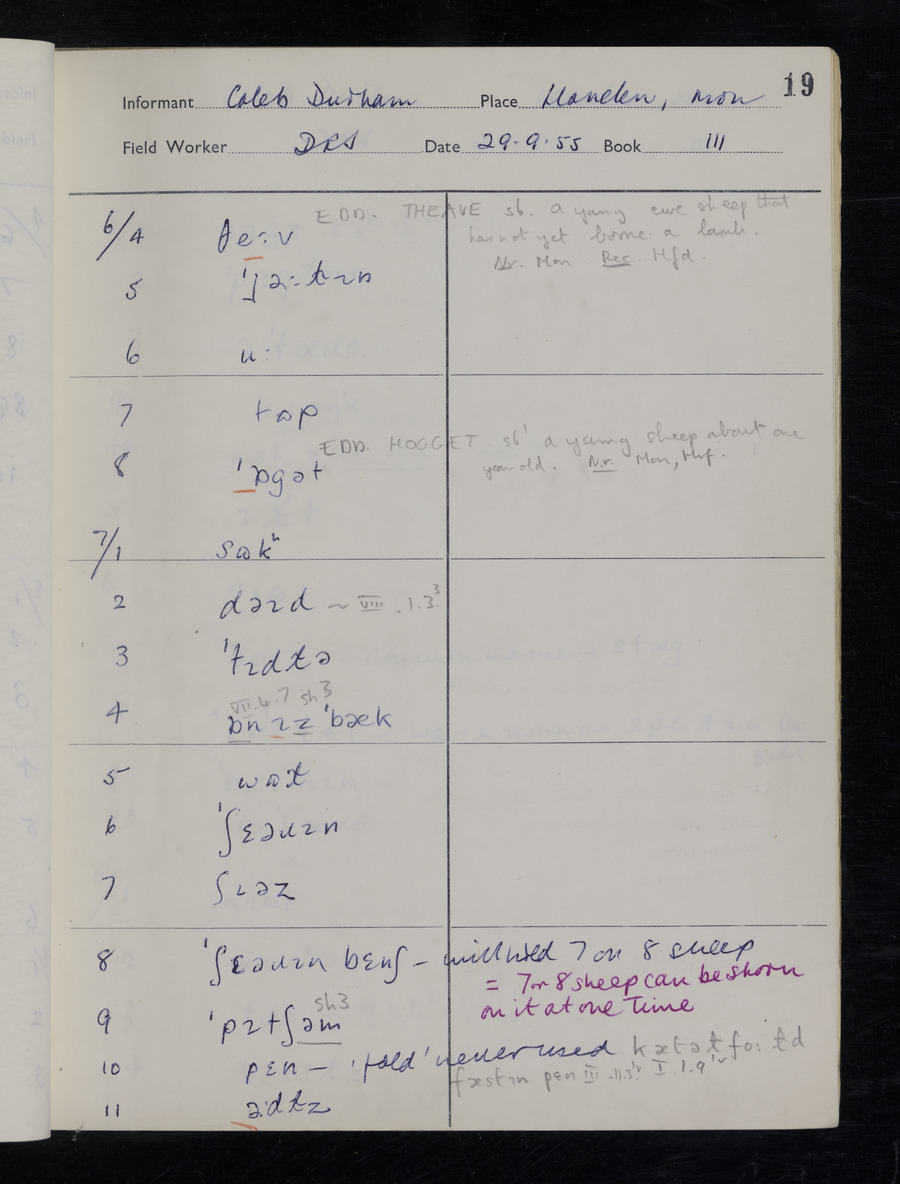 19
Informant Caleb Durham Place Llanellen, Mon
Field Worker DRS Date 29·9·55 Book III
6/4 θe:v EDD. THEAVE sb. a young ewe sheep that
has not yet borne a lamb.
Mon. Rec. Hfd.
5
6 u:
7 tɷp
8 'ɒgət EDD. HOGGET sb' a young sheep about one
year old. N.r. Mon, Hrf.
7/1 sɷkʰ
2 dəɹd ~ VIII .1.3³
3
4 VII.4.7 sh3
ɒn ɪz 'bæk
5
6 'ʃɛəɹɪn
7 ʃɪəz
8 'ʃɛəɹɪn bɛnʃ – will hold 7 or 8 sheep
= 7 or 8 sheep can be shorn
on it at one time
9 'pɪtʃəm sh3
10 pɛn – 'fold' never used
fæstɪn pɛn III
11